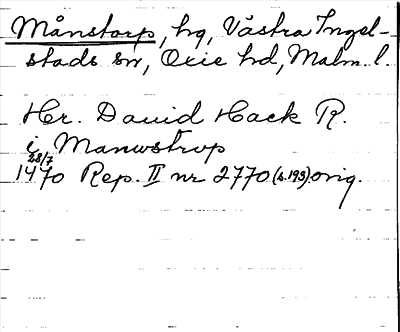 Månstorp, hg, Västra Ingel-
stads sn, Oxie hd, Malm. l.
Hr. David Hack R.
i Manwstrvp
28/7
1470 Rep. II nr 2770 (s. 193). orig.